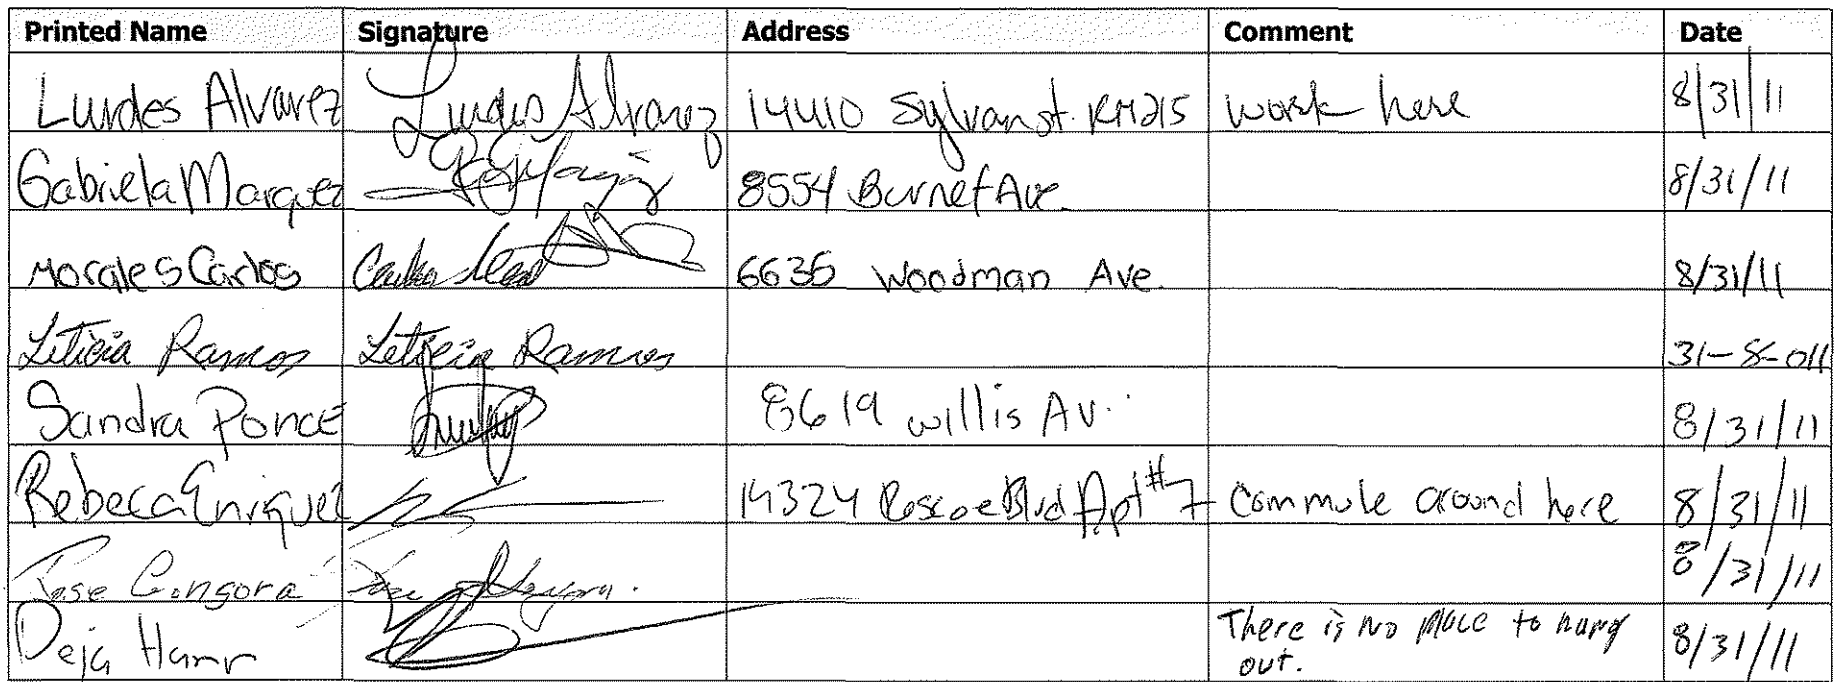 Printed Name Signature Address Comment Date
Lurdes Alvarez Lurdes Alvarez 14410 Sylvan st. RM215 work here 8/31/11
Gabriela Marquez 8554 Burnet Ave. 8/31/11
Morales Carlos 6635 Woodman Ave. 8/31/11
Leticia Ramos Leticia Ramos 31-8-011
Sandra Ponce 8619 willis AV. 8/31/11
Rebeca Enriquez 14324 Roscoe Blvd Apt #7 Commute around here 8/31/11
Jose Gongora 8/31/11
Deja There is no place to hang 8/31/11
out.